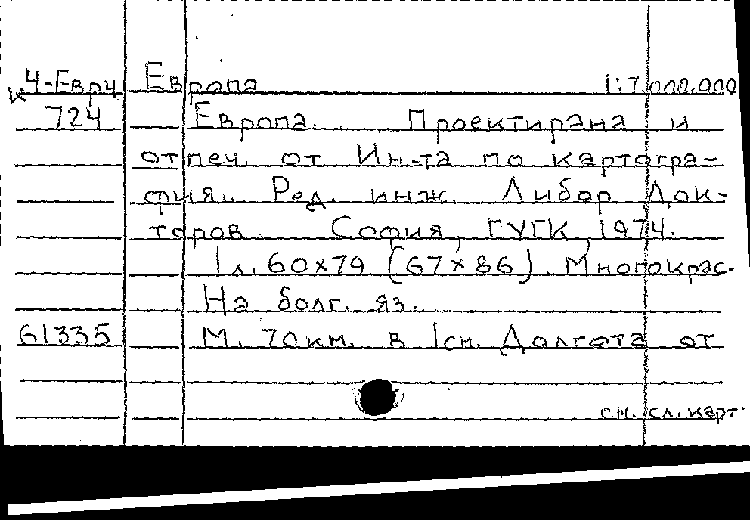 К 4-Евр4 Европа 1:7.000.000
724 Европа. Проектирана и
отпеч. от Ин-та по картогра-
фия. Ред. инж. Любор Док-
торов. София, ГУГК, 1974.
1 л. 60x79 (67x86). Многокрас.
На болг. яз.
61335 М. 70км. в 1см. Долгота от
см. сл. карт.